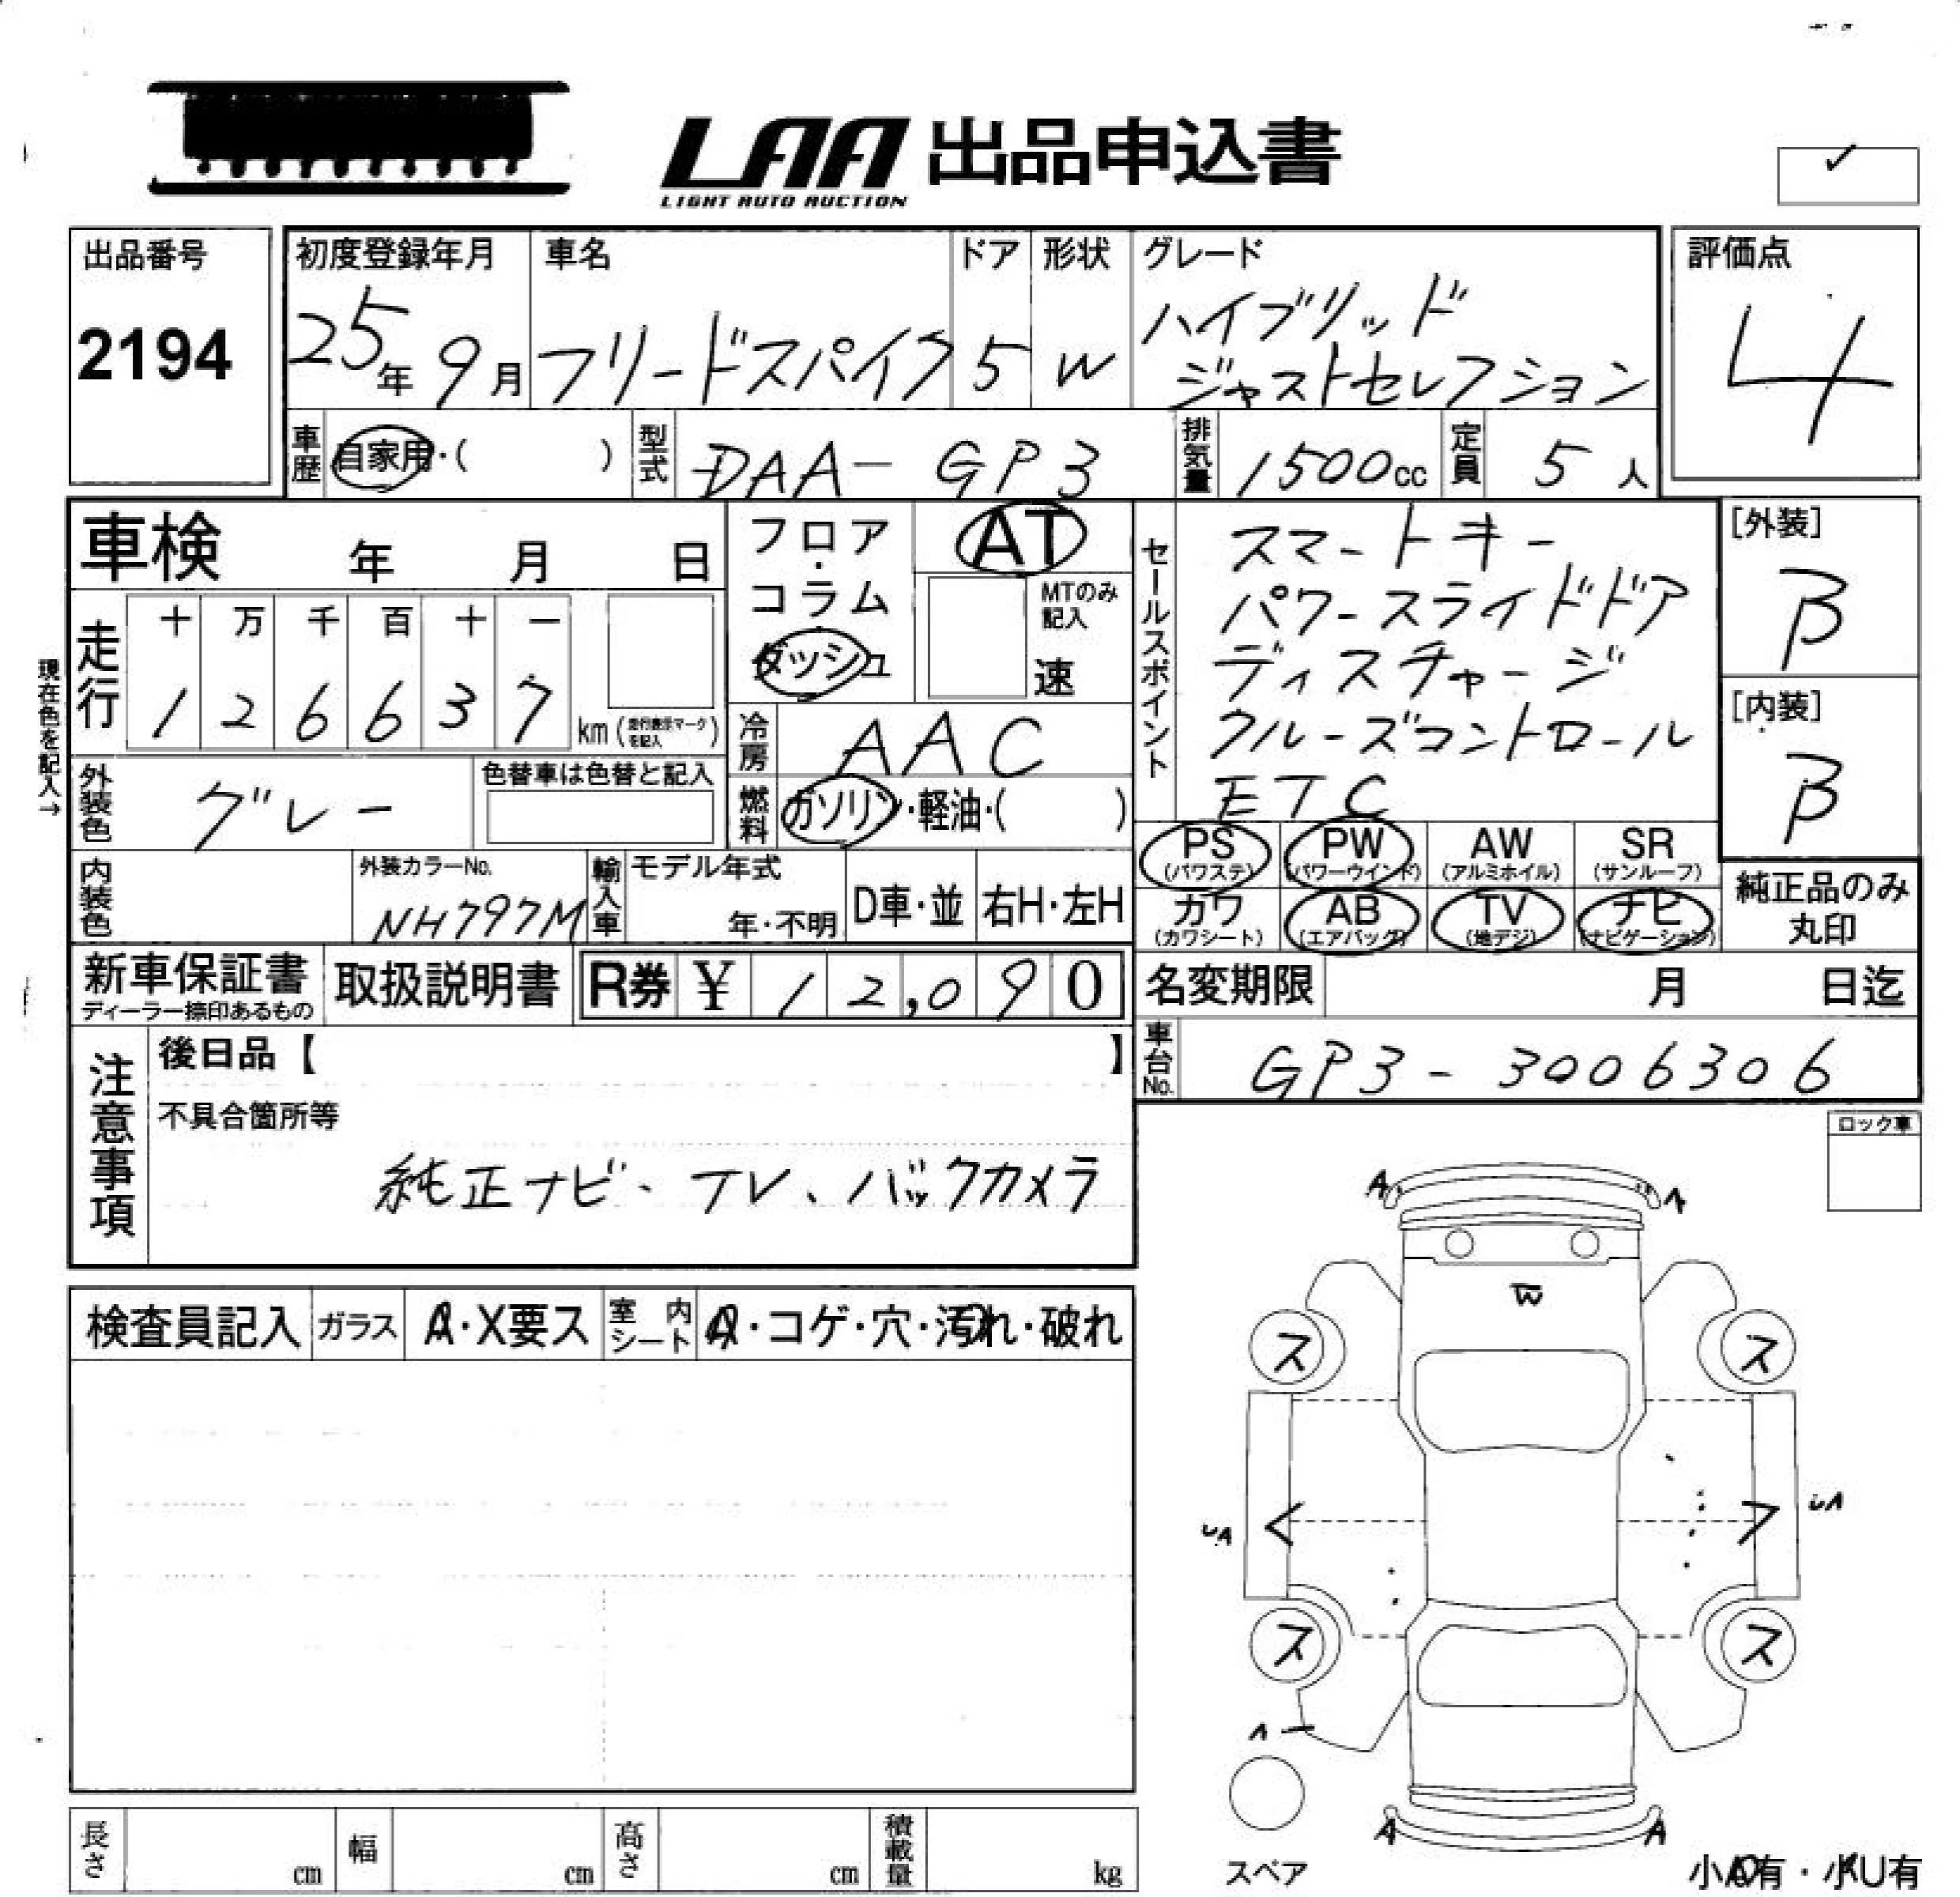 LAA 出品申込書
LIGHT AUTO AUCTION
出品番号
2194
初度登録年月
25年 9月
車名
フリードスパイク
ドア
5
形状
W
グレード
ハイブリッド
ジャストセレクション
評価点
4
車歴
自家用・( )
型式
DAA-GP3
排気量
1500cc
定員
5人
車検 年 月 日
フロア・コラム
ダッシュ
AT
MTのみ記入
速
セールスポイント
スマートキー
パワースライドドア
ディスチャージ
クルーズコントロール
ETC
[外装]
B
[内装]
B
現在色を記入→
走行
十 万 千 百 十 一
1 2 6 6 3 7 km (走行表示マークを記入)
冷房
AAC
外装色
グレー
色替車は色替と記入
燃料
ガソリン・軽油・( )
PS (パワステ)
PW (パワーウインド)
AW (アルミホイル)
SR (サンルーフ)
カワ (カワシート)
AB (エアバック)
TV (地デジ)
ナビ (ナビゲーション)
純正品のみ
丸印
内装色
外装カラーNo.
NH797M
輸入車
モデル年式
年・不明
D車・並
右H・左H
新車保証書
ディーラー捺印あるもの
取扱説明書
R券 ¥ 12,090
名変期限 月 日迄
車台No.
GP3-3006306
注意事項
後日品【 】
不具合箇所等
純正ナビ、TV、バックカメラ
ロック車
検査員記入
ガラス
A・X要ス
室内シート
・コゲ・穴・汚れ・破れ
A A
ス ス
UA UA
ス ス
A
A A
スペア
長さ cm
幅 cm
高さ cm
積載量 kg
小 有・小U有